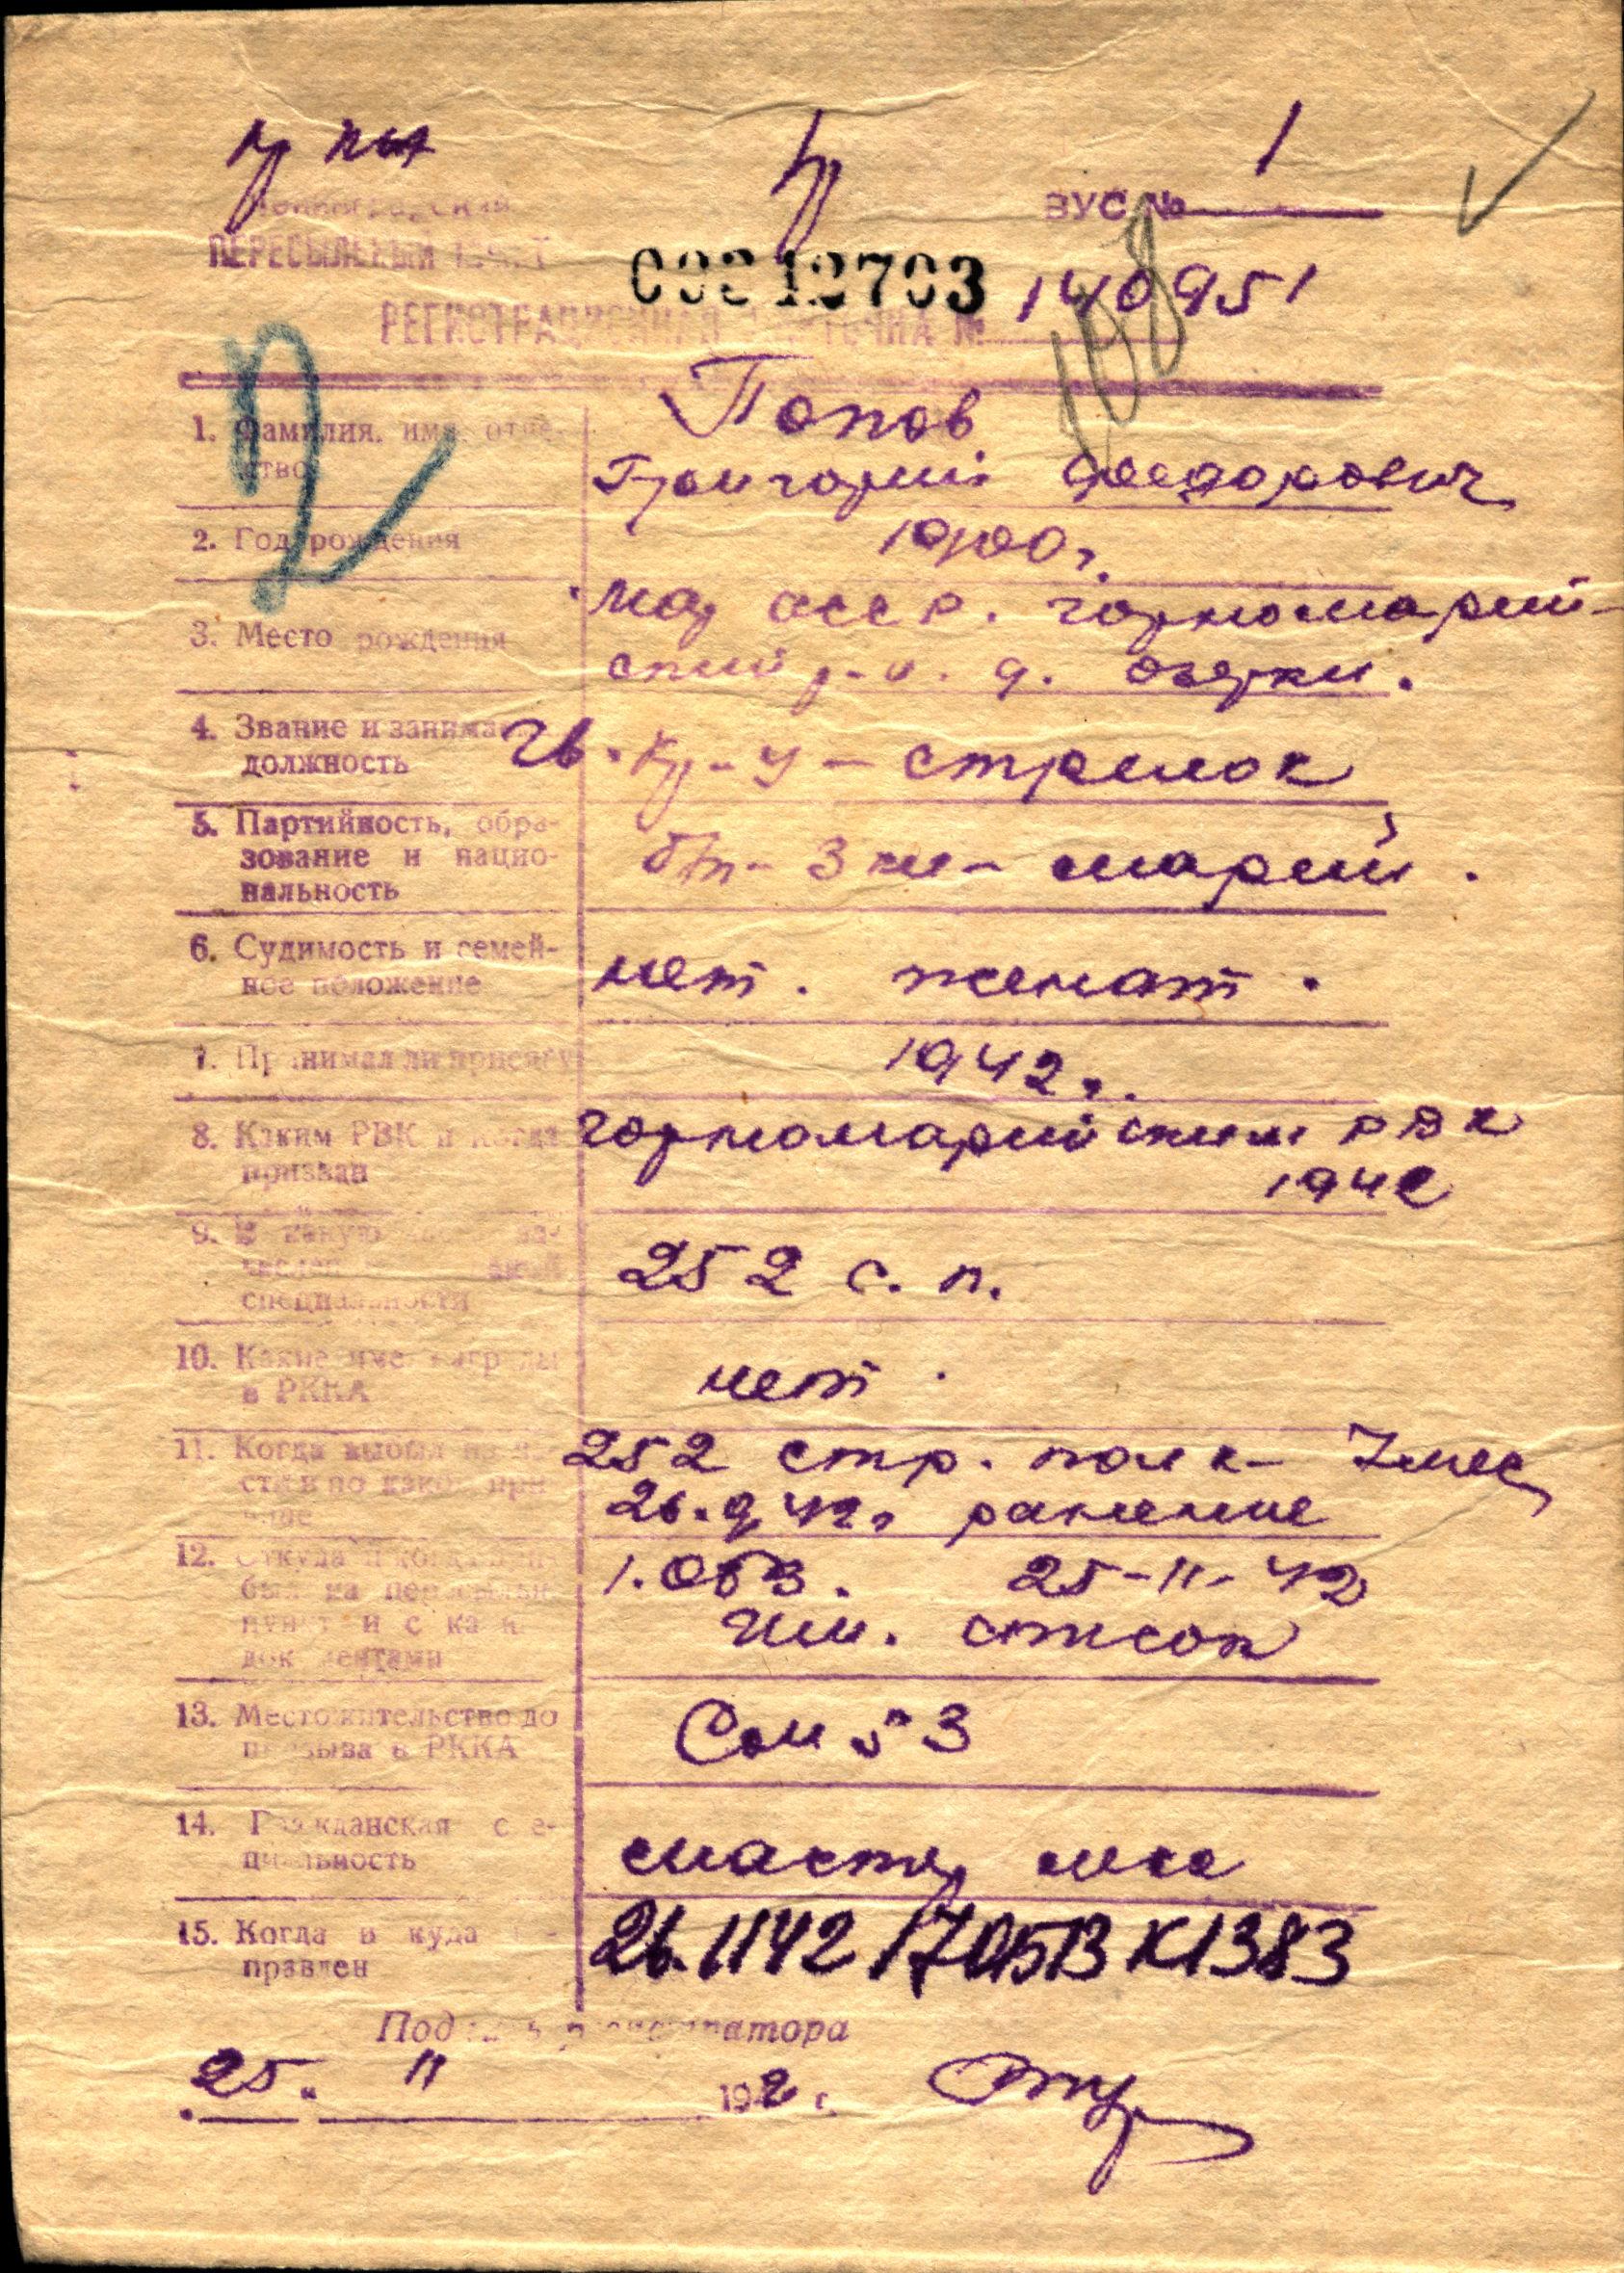 кр
1
ВУС №
ПЕРЕСЫЛЬНЫЙ ПУНКТ
00312703
РЕГИСТРАЦИОННАЯ КАРТОЧКА № 140951
1. Фамилия, имя, отче-
ство
Попов
Григорий Феодорович
2. Год рождения
1900 г.
3. Место рождения
Мар асср. горномарий-
ский р-н. д. озерки.
4. Звание и занима
должность
Гв. Кр-ц - стрелок
5. Партийность, обра-
зование и нацио-
нальность
б/п - 3 кл - марий.
6. Судимость и семей-
ное положение
нет. женат.
7. Принимал ли присягу
1942 г.
8. Каким РВК и когда
призван
горномарийским РВК
1942
9. В какую за-
числен
специальности
252 с. п.
10. Какие име награды
в РККА
нет.
11. Когда выбыл из ча-
сти и по какой при-
чине
252 стр. полк - 7 мес
26.9.42 г. ранение
12. Откуда и когда при-
был на пересыльн
пункт и с как
документами
1. ОБВ. 25-11-42
Им. список
13. Местожительство до
призыва в РККА
Сом п 3
14. Гражданская спе-
циальность
мастер
15. Когда и куда на-
правлен
26.1142 К1383
Подпись регистратора
25. 11 1942 г.